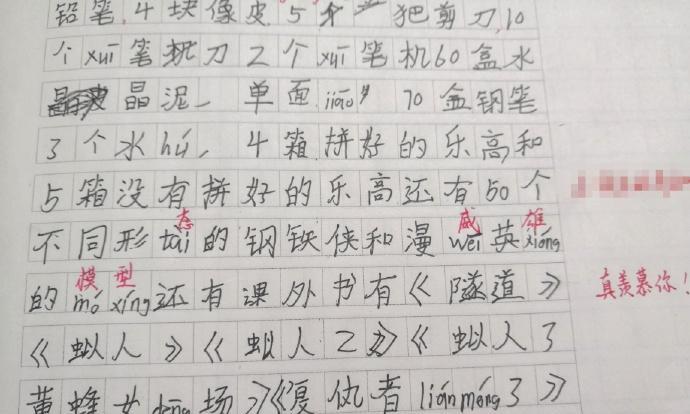 铅笔,4块像皮,5把剪刀,10
个xuē笔机刀2个xuē笔机60盒水
晶泥、单面jiāo、70盒钢笔
3个水hú,4箱拼好的乐高和
5箱没有拼好的乐高还有50个
态 威 雄
不同形tài的钢铁侠和漫wēi英xióng
模型
的mó xíng还有课外书有《隧道》
真羡慕你!
《蚁人》《蚁人2》《蚁人3
黄蜂女 场》《复仇者lián méng3》